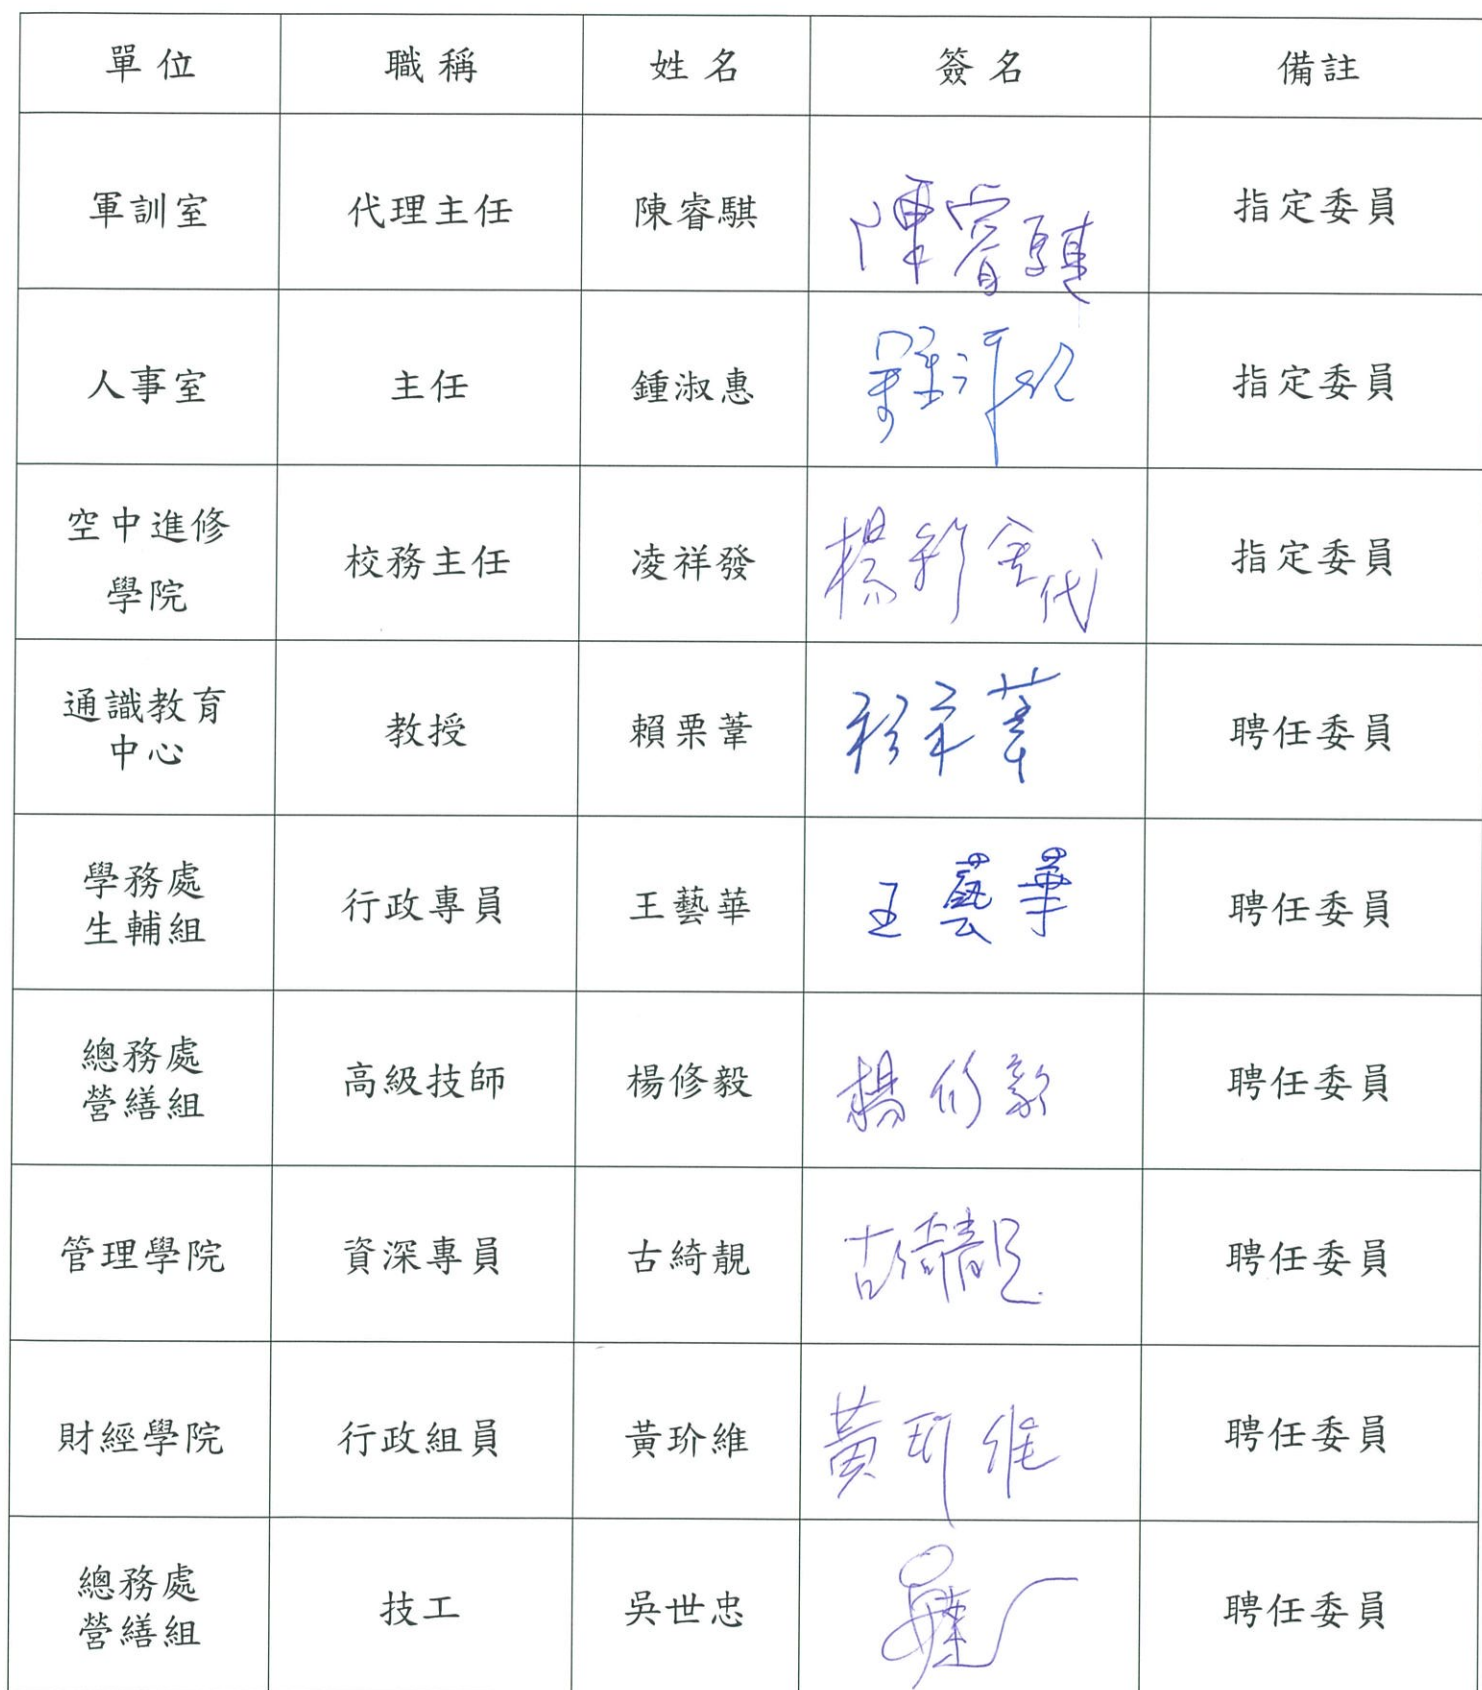 單位 職稱 姓名 簽名 備註
軍訓室 代理主任 陳睿騏 陳睿騏 指定委員
人事室 主任 鍾淑惠 指定委員
空中進修
學院 校務主任 凌祥發 楊彩金代 指定委員
通識教育
中心 教授 賴栗葦 賴栗葦 聘任委員
學務處
生輔組 行政專員 王藝華 王藝華 聘任委員
總務處
營繕組 高級技師 楊修毅 楊修毅 聘任委員
管理學院 資深專員 古綺靚 古綺靚 聘任委員
財經學院 行政組員 黃玠維 黃玠維 聘任委員
總務處
營繕組 技工 吳世忠 聘任委員